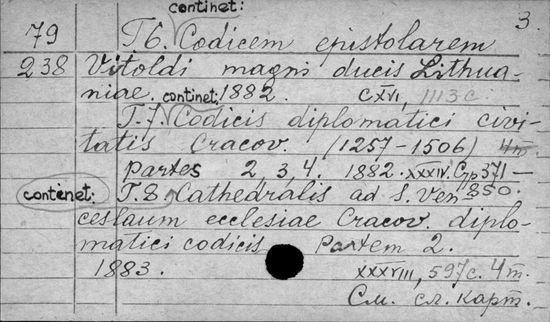 continet:
3.
79 T.6. Codicem epistolarem
238 Vitoldi magni ducis Lithua-
niae. 1882. CXVI, 1113 c.
continet:
T.7. Codicis diplomatici civi-
tatis Cracov. (1257-1506) 4m.
Partes 2, 3, 4. 1882. XXXIV. Стр 371-
850.
continet: T.8. Cathedralis ad S. Ven
ceslaum ecclesiae Cracov. diplo-
matici codicis Partem 2.
1883. XXXVIII, 597 c. 4m.
См. сл. карт.